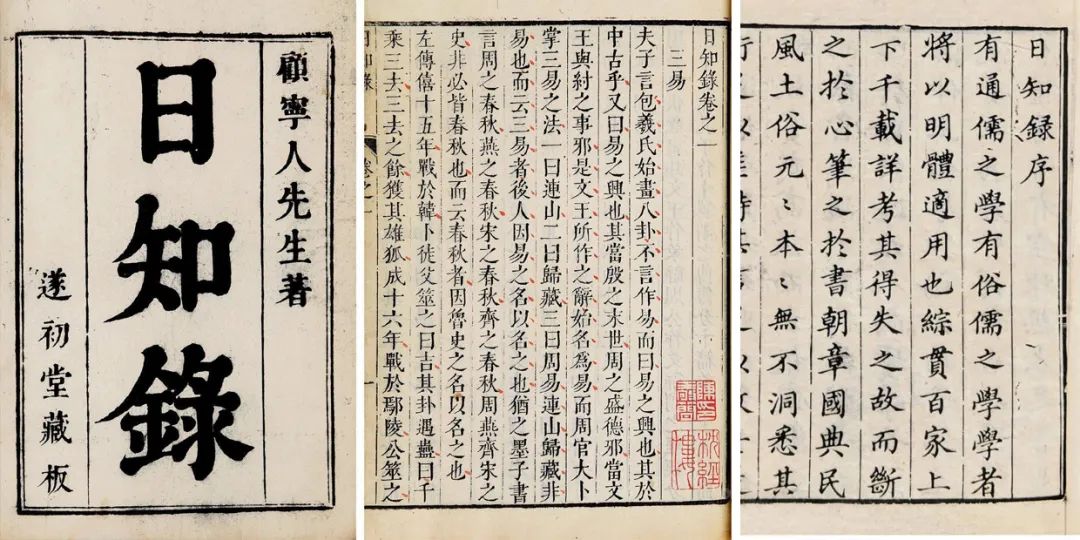 顧寧人先生著
日知錄
遂初堂藏板
日知錄卷之一
三易
夫子言包羲氏始畫八卦不言作易而曰易之興也其於
中古乎又曰易之興也其當殷之末世周之盛德邪當文
王與紂之事邪是文王所作之辭始名爲易而周官大卜
掌三易之法一曰連山二曰歸藏三曰周易連山歸藏非
易也而云三易者後人因易之名以名之也猶之墨子書
言周之春秋燕之春秋宋之春秋齊之春秋周燕齊宋之
史非必皆春秋也而云春秋者因魯史之名以名之也
左傳僖十五年戰於韓卜徒父筮之曰吉其卦遇蠱曰千
乘三去三去之餘獲其雄狐成十六年戰於鄢陵公筮之
日知錄序
有通儒之學有俗儒之學學者
將以明體適用也綜貫百家上
下千載詳考其得失之故而斷
之於心筆之於書朝章國典民
風土俗元〻本〻無不洞悉其